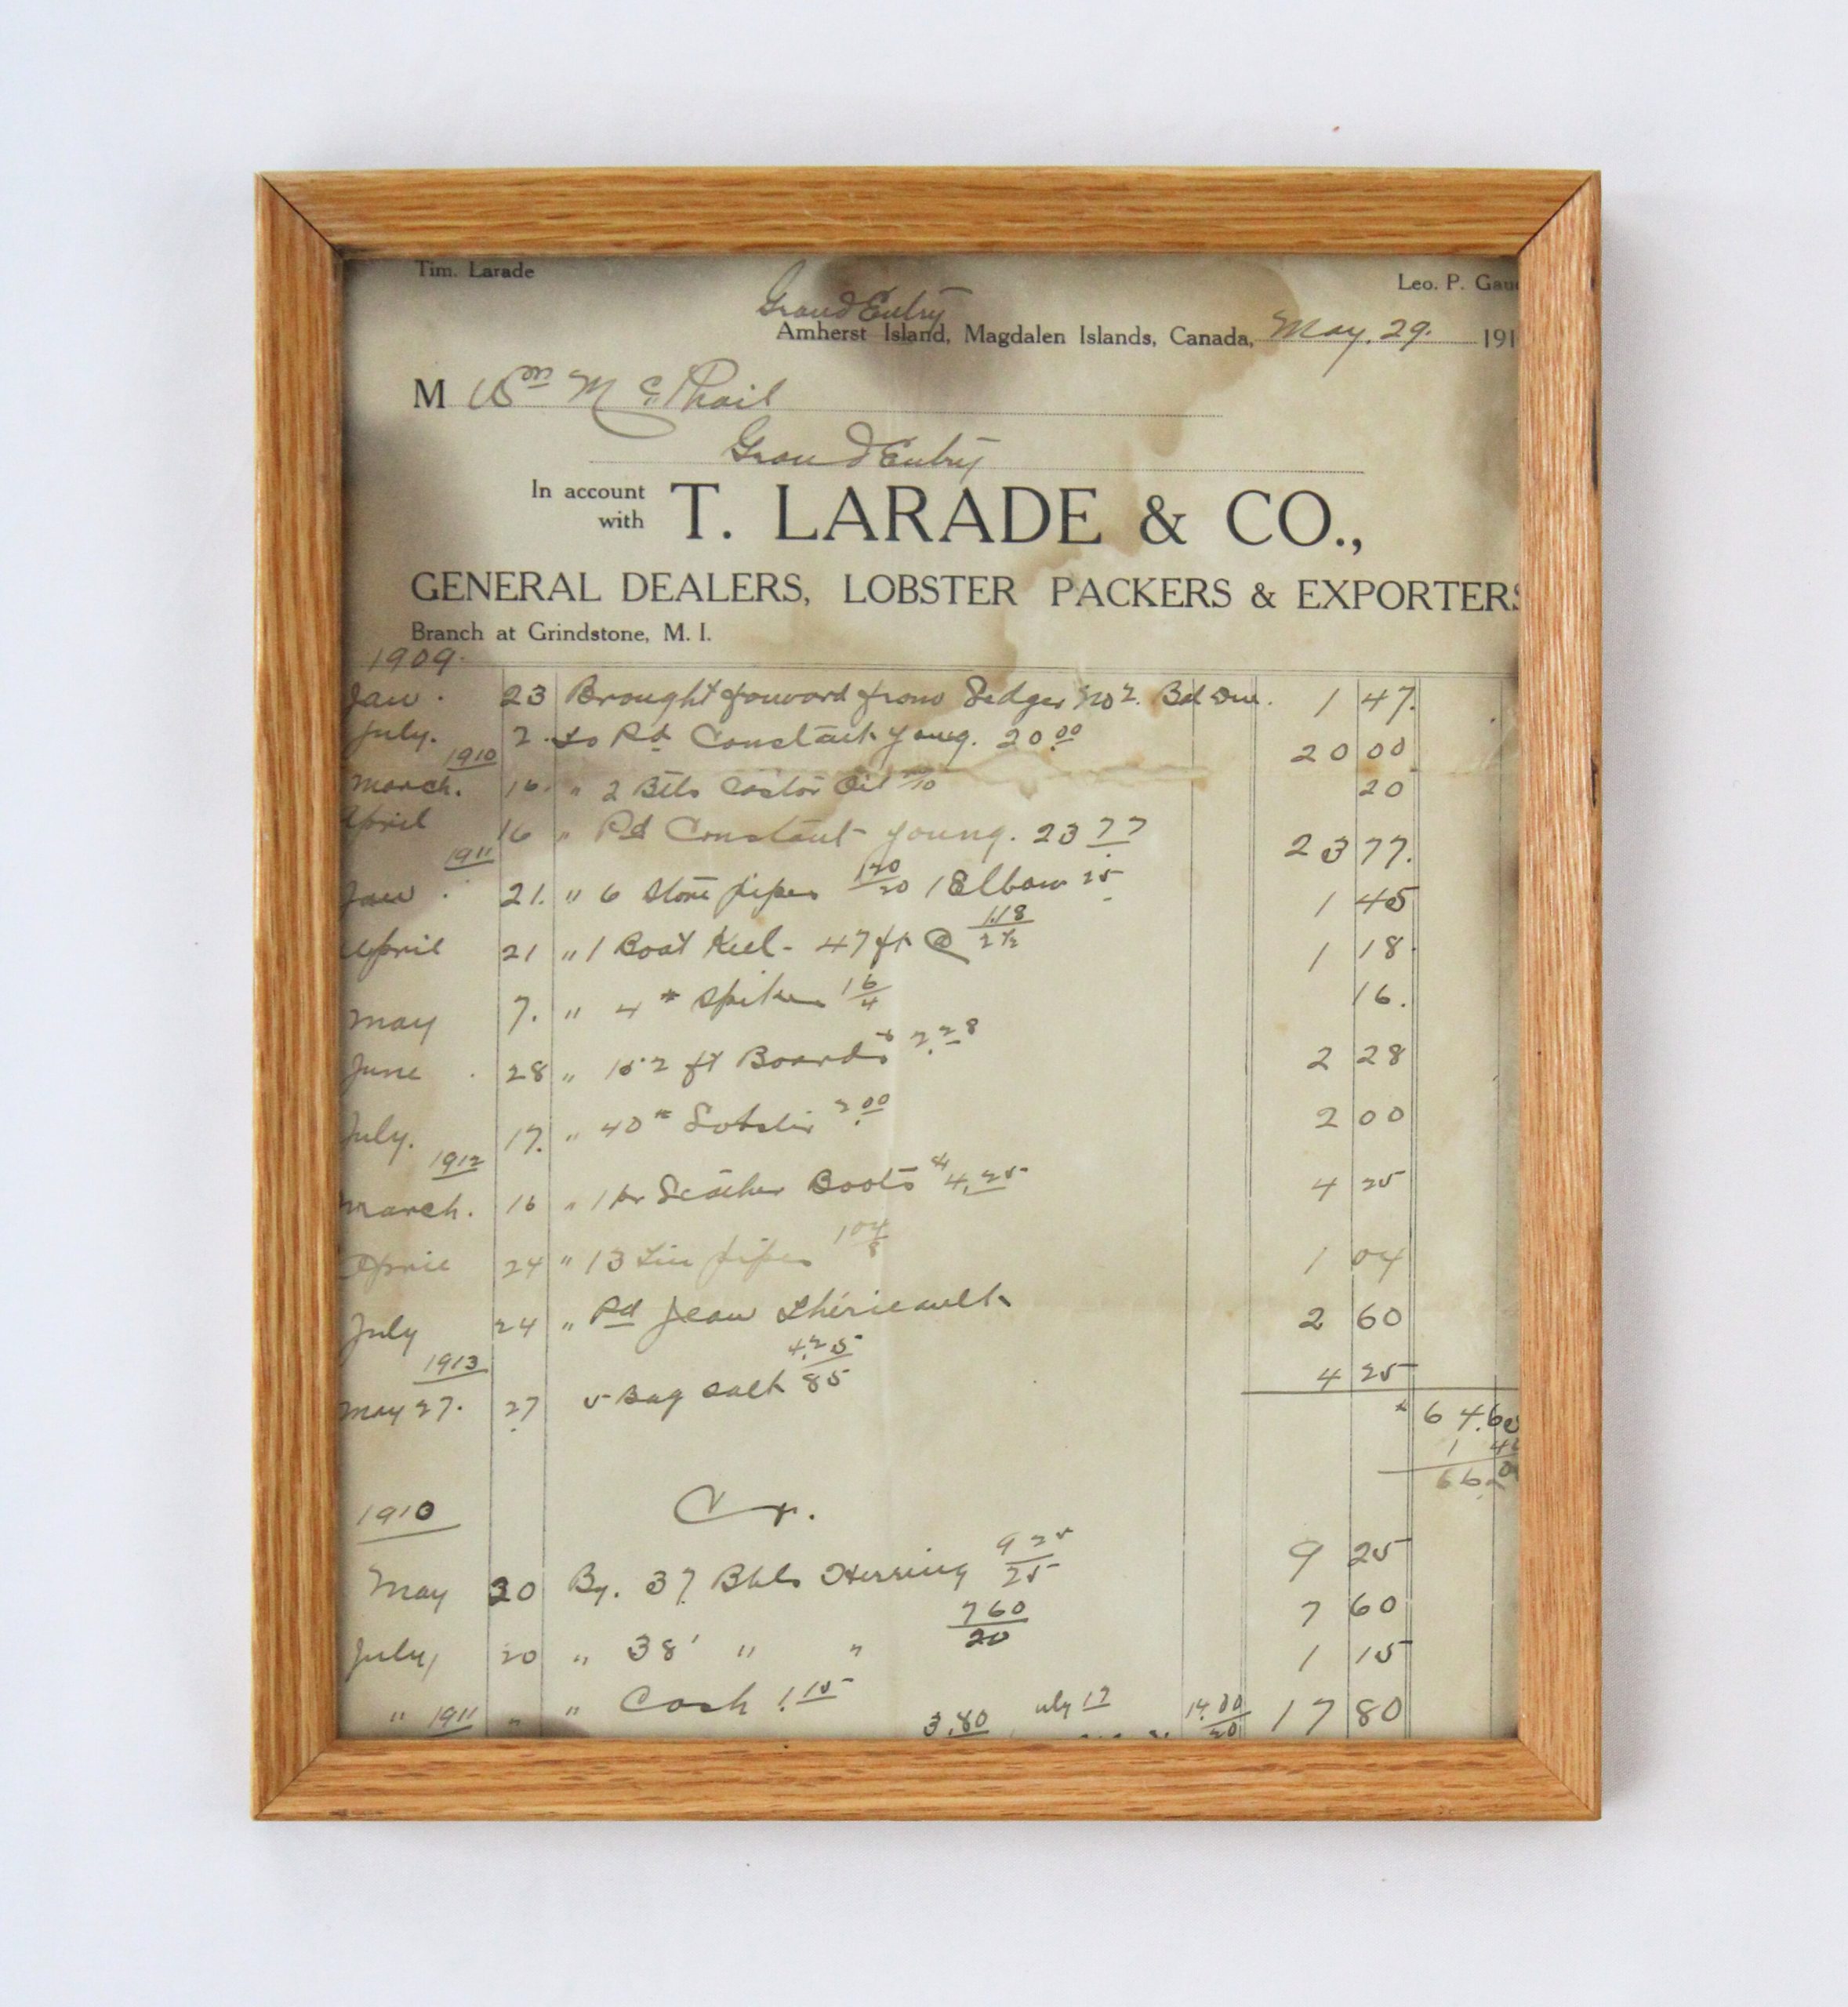 Tim. Larade
Leo. P. Gau
Grand Entry
Amherst Island, Magdalen Islands, Canada, May. 29. 191
M Wm McPhail
Grand Entry
In account with T. LARADE & CO.,
GENERAL DEALERS, LOBSTER PACKERS & EXPORTERS
Branch at Grindstone, M. I.
1909
Jan. 23 Brought forward from Ledger No 2. Bal Due. 1 47.
July. 2 To Pd Constant Young. 20.00 20 00
1910
March. 16. " 2 Btls Castor Oil 20/10 20
April 16 " Pd Constant Young. 23 77 23 77.
1911
Jan. 21. " 6 Stove pipes 120/20 1 Elbow 25 1 45
April 21 " 1 Boat Keel - 47 ft @ 1.18/2½ 1 18
May 7. " 4 # Spikes 16/4 16.
June 28 " 152 ft Boards 2.28 2 28
July. 17. " 40 # Lobster 2.00 2 00
1912
March. 16 " 1 pr Leather Boots 4.25 4 25
April 24 " 13 Tin pipes 104/8 1 04
July 24 " Pd Jean Thérieault 2 60
1913
May 27. 27 5 Bag Salt 4.25/85 4 25
64.60
1
66.
1910 Cr.
May 30 By. 37 Bbls Herring 925/25 9 25
July, 20 " 38 " " 760/20 7 60
" " " Cash 1.15 1 15
1911 3.80 July 17 14.00/20 17 80